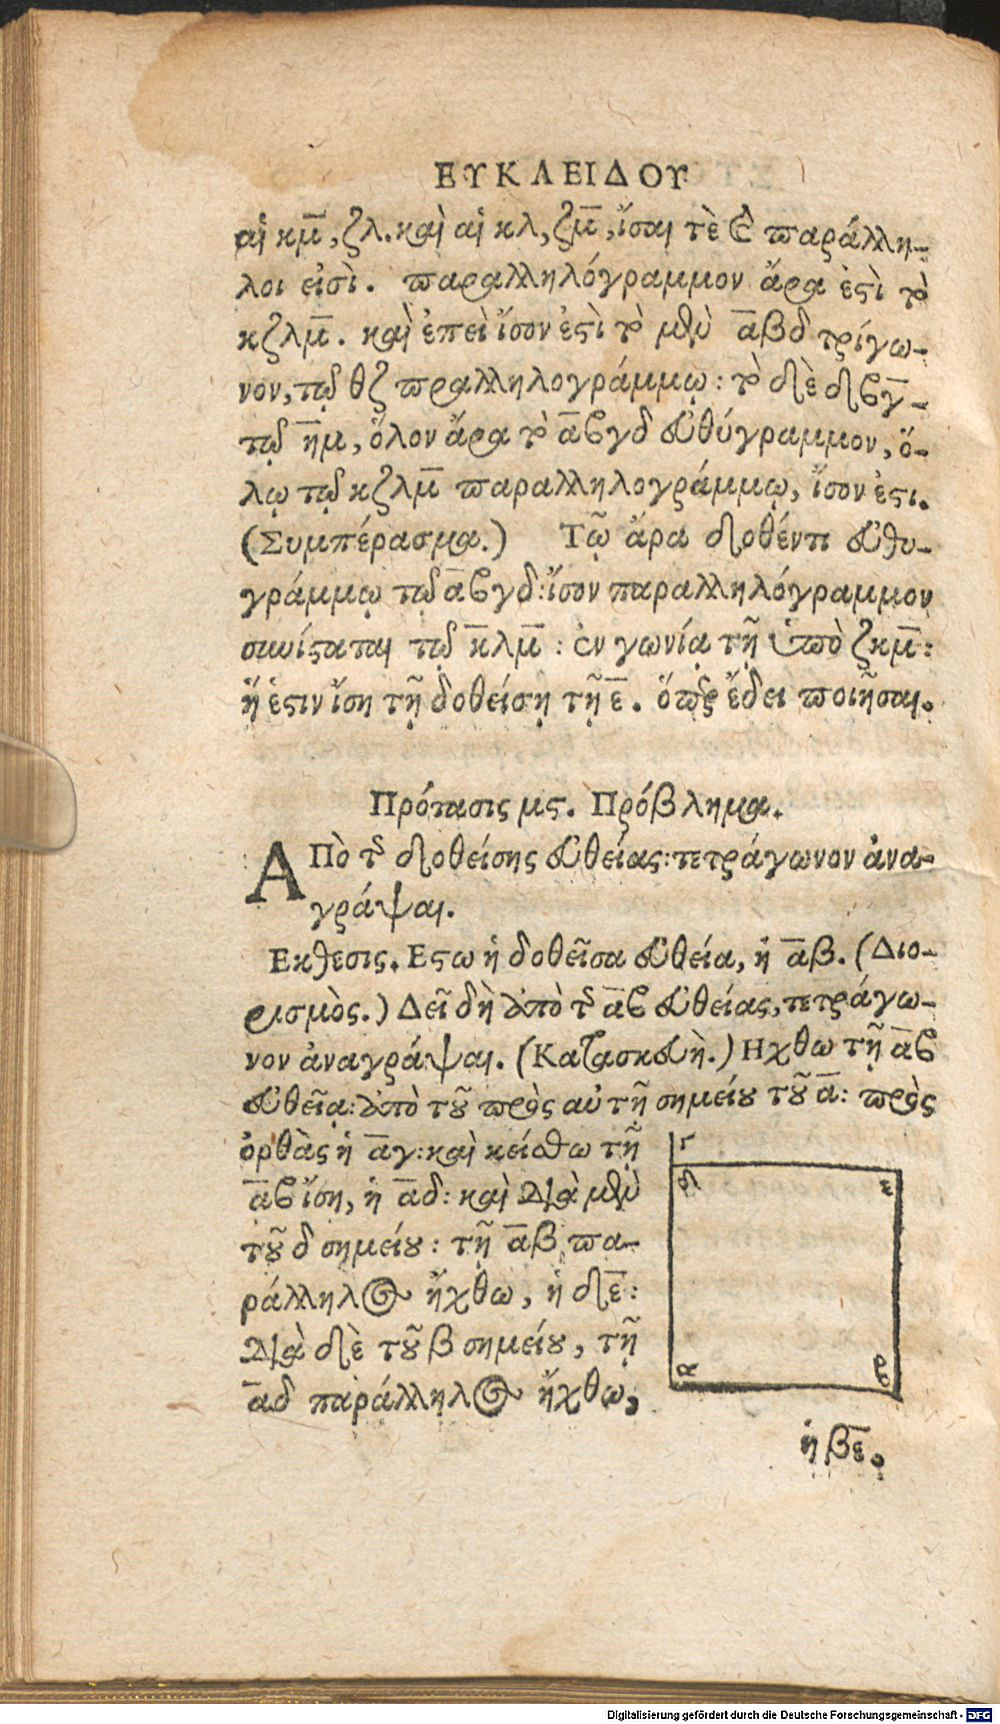 ΕΥΚΛΕΙΔΟΥ
αἱ κμ̅, ζλ. καὶ αἱ κλ, ζμ̅, ἴσαι τὲ ϗ̀ παράλλη-
λοι εἰσὶ. παραλληλόγραμμον ἄρα ἐϛὶ τὸ
κζλμ̅. καὶ ἐπεὶ ἴσον ἐϛὶ τὸ μὲν α̅βδ τρίγω-
νον, τῷ θζ πραλληλογράμμῳ: τὸ δὲ δβγ̅
τῷ η̅μ, ὅλον ἄρα τὸ α̅βγδ εὐθύγραμμον, ὅ-
λῳ τῷ κζλμ̅ παραλληλογράμμῳ, ἴσον ἐϛι.
(Συμπέρασμα.) Τῷ ἄρα δοθέντι εὐθυ-
γράμμῳ τῷ α̅βγδ: ἴσον παραλληλόγραμμον
συνίϛαται τῷ κ̅λμ̅: ἐν γωνίᾳ τῇ ὑπὸ ζκμ̅:
ἥ ἐϛιν ἴση τῇ δοθείσῃ τῇ ε̅. ὅπερ ἔδει ποιῆσαι.
Πρότασις μϛ. Πρόβλημα.
ΑΠὸ τῆς δοθείσης εὐθείας: τετράγωνον ἀνα-
γράψαι.
Εκθεσις. Εϛω ἡ δοθεῖσα εὐθεία, ἡ α̅β. (Διο-
ρισμὸς.) Δεῖ δὴ ἀπὸ τῆς α̅β εὐθείας, τετράγω-
νον ἀναγράψαι. (Κατασκευὴ.) Ηχθω τῇ α̅β
εὐθεῖᾳ: ἀπὸ τοῦ πρὸς αὐτῇ σημείου τοῦ α̅: πρὸς
ὀρθὰς ἡ α̅γ: καὶ κείσθω τῇ
α̅β ἴση, ἡ α̅δ: καὶ διὰ μὲν
τοῦ δ σημείου: τῇ α̅β πα-
ράλληλος ἤχθω, ἡ δε̅:
διὰ δὲ τοῦ β σημείου, τῇ
α̅δ παράλληλος ἤχθω,
γ
δ ε
α β
ἡ βε̅.
Digitalisierung gefördert durch die Deutsche Forschungsgemeinschaft - DFG